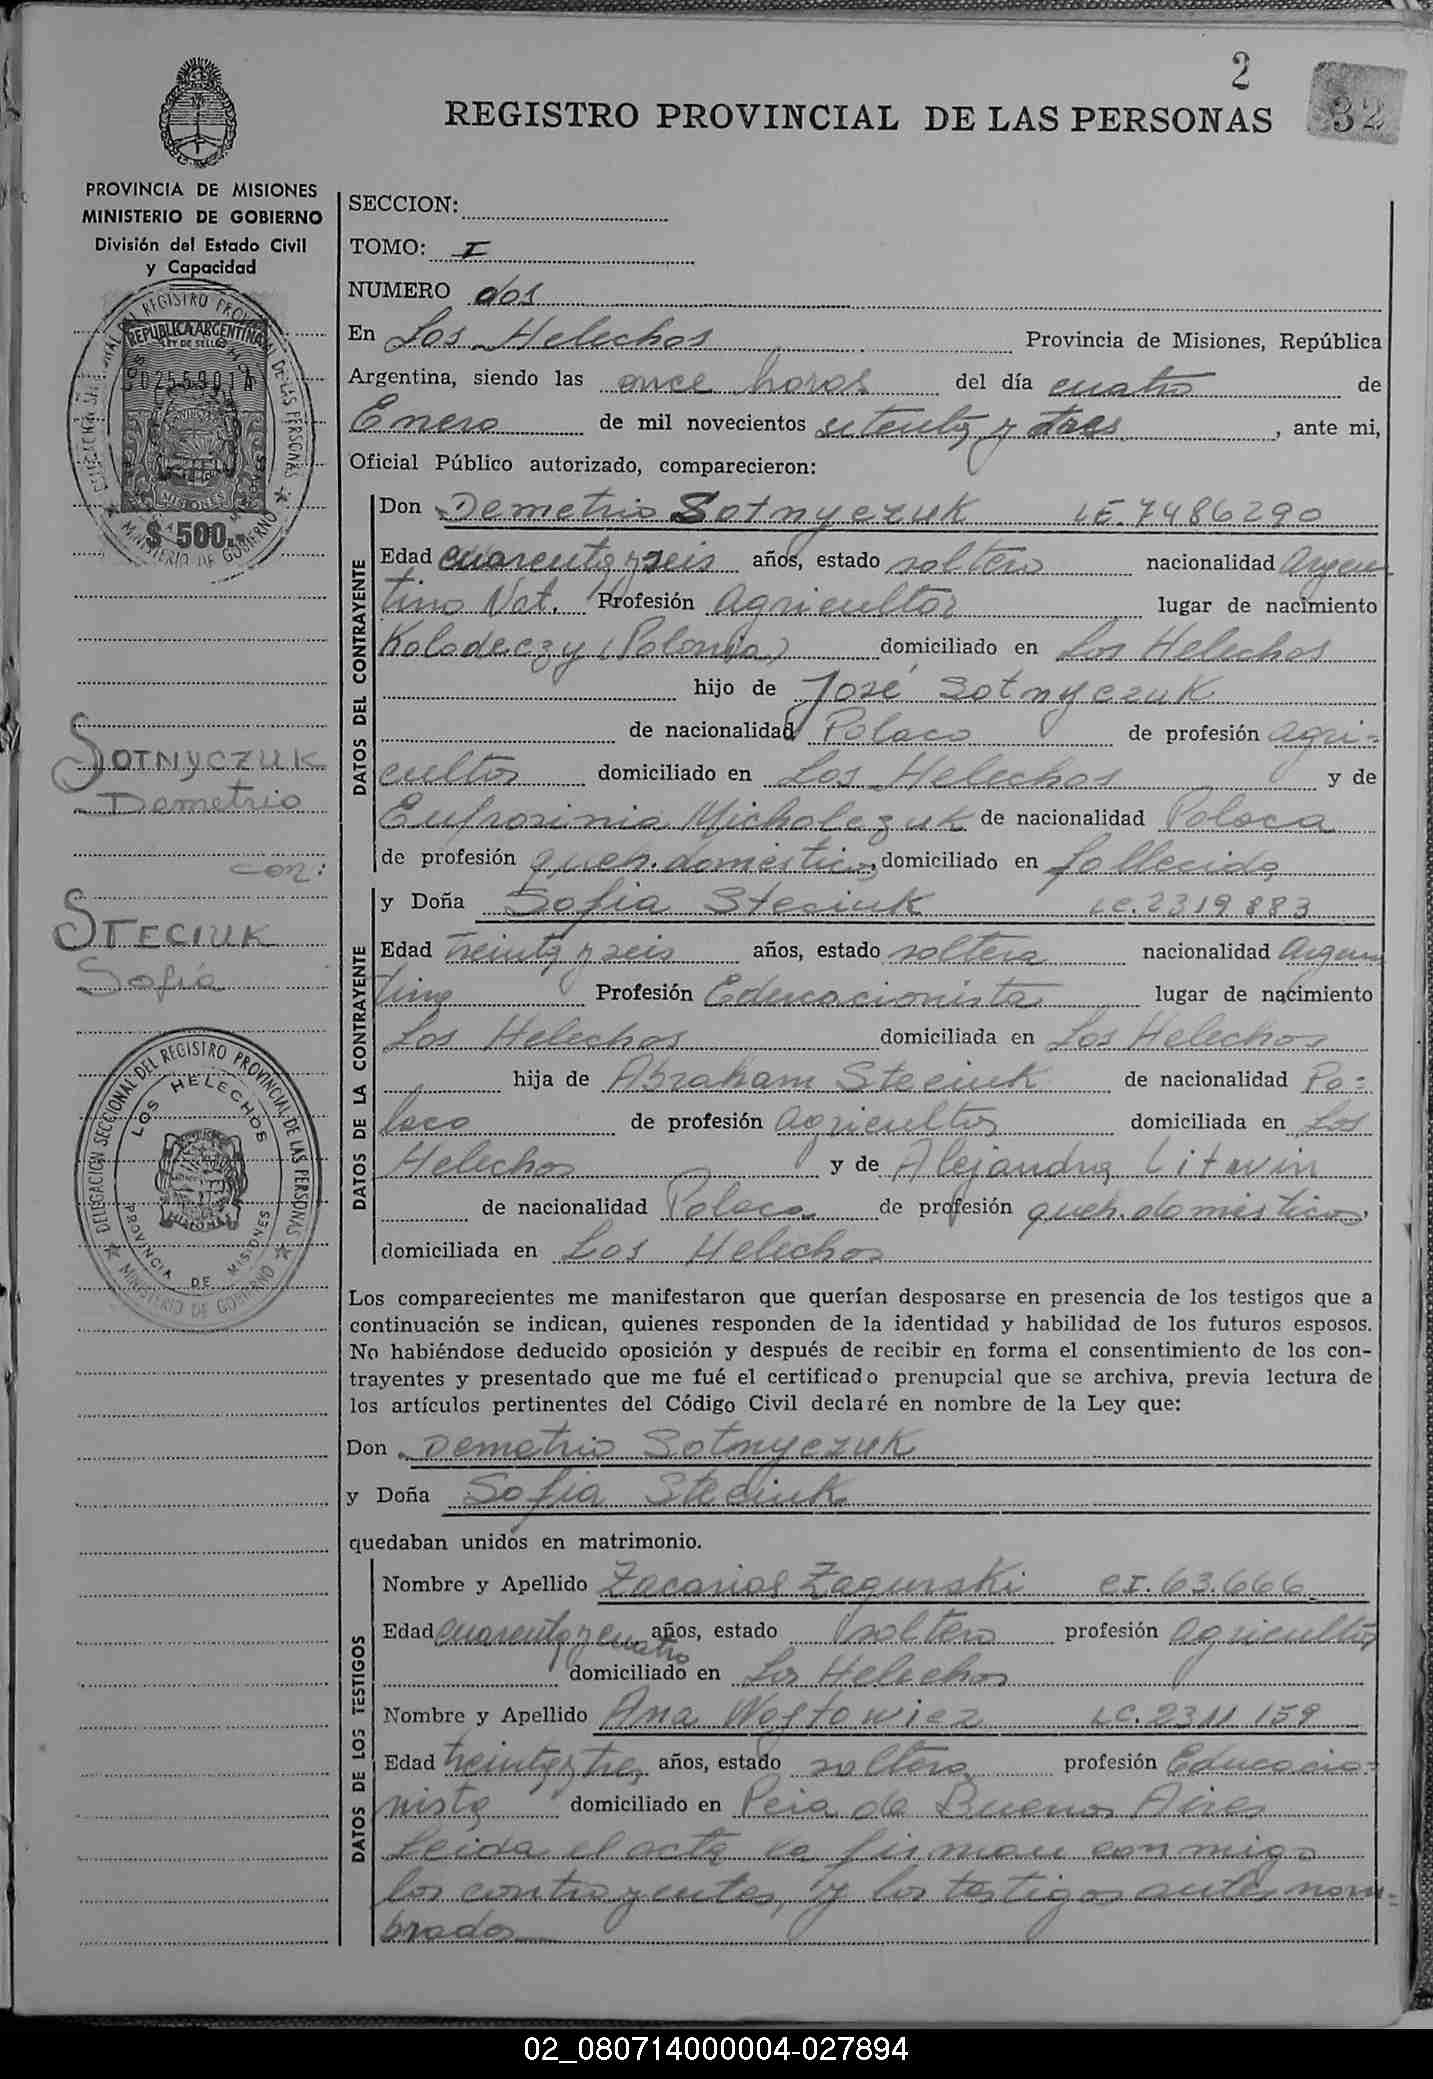 2
32
REGISTRO PROVINCIAL DE LAS PERSONAS
PROVINCIA DE MISIONES
MINISTERIO DE GOBIERNO
División del Estado Civil
y Capacidad
REPUBLICA ARGENTINA
LEY DE SELLOS
MISIONES
$ 500.-
MINISTERIO DE GOBIERNO
SOTNYCZUK
Demetrio
con:
STECIUK
Sofía
DELEGACION SECCIONAL DEL REGISTRO PROVINCIAL DE LAS PERSONAS
LOS HELECHOS
PROVINCIA DE MISIONES
MINISTERIO DE GOBIERNO
SECCION:
TOMO: I
NUMERO dos
En Los Helechos Provincia de Misiones, República
Argentina, siendo las once horas del día cuatro de
Enero de mil novecientos setenta y tres, ante mi,
Oficial Público autorizado, comparecieron:
DATOS DEL CONTRAYENTE
Don Demetrio Sotnyczuk LE. 7486290
Edad cuarenta y seis años, estado soltero nacionalidad Argen
tino Nat. Profesión Agricultor lugar de nacimiento
Kolodeczy (Polonia) domiciliado en Los Helechos
hijo de José Sotnyczuk
de nacionalidad Polaco de profesión agri=
cultor domiciliado en Los Helechos y de
Eufrosinia Micholczuk de nacionalidad Polaca
de profesión queh. domésticos, domiciliado en fallecida
DATOS DE LA CONTRAYENTE
y Doña Sofia Steciuk LC. 2319883
Edad treinta y seis años, estado soltera nacionalidad Argen
tina Profesión Educacionista lugar de nacimiento
Los Helechos domiciliada en Los Helechos
hija de Abraham Steciuk de nacionalidad Po=
laco de profesión agricultor domiciliada en Los
Helechos y de Alejandra Litwin
de nacionalidad Polaca de profesión queh. domésticos,
domiciliada en Los Helechos
Los comparecientes me manifestaron que querían desposarse en presencia de los testigos que a
continuación se indican, quienes responden de la identidad y habilidad de los futuros esposos.
No habiéndose deducido oposición y después de recibir en forma el consentimiento de los con-
trayentes y presentado que me fué el certificado prenupcial que se archiva, previa lectura de
los artículos pertinentes del Código Civil declaré en nombre de la Ley que:
Don Demetrio Sotnyczuk
y Doña Sofia Steciuk
quedaban unidos en matrimonio.
DATOS DE LOS TESTIGOS
Nombre y Apellido Zacarias Zagurski CI. 63.666
Edad cuarenta y cuatro años, estado soltero profesión agricultor
domiciliado en Los Helechos
Nombre y Apellido Ana Woytowicz LC. 2311159
Edad treinta y tres años, estado soltera profesión Educacio=
nista domiciliado en Pcia de Buenos Aires
Leida el acta la firman conmigo
los contrayentes, y los testigos antes nom=
brados
02_080714000004-027894